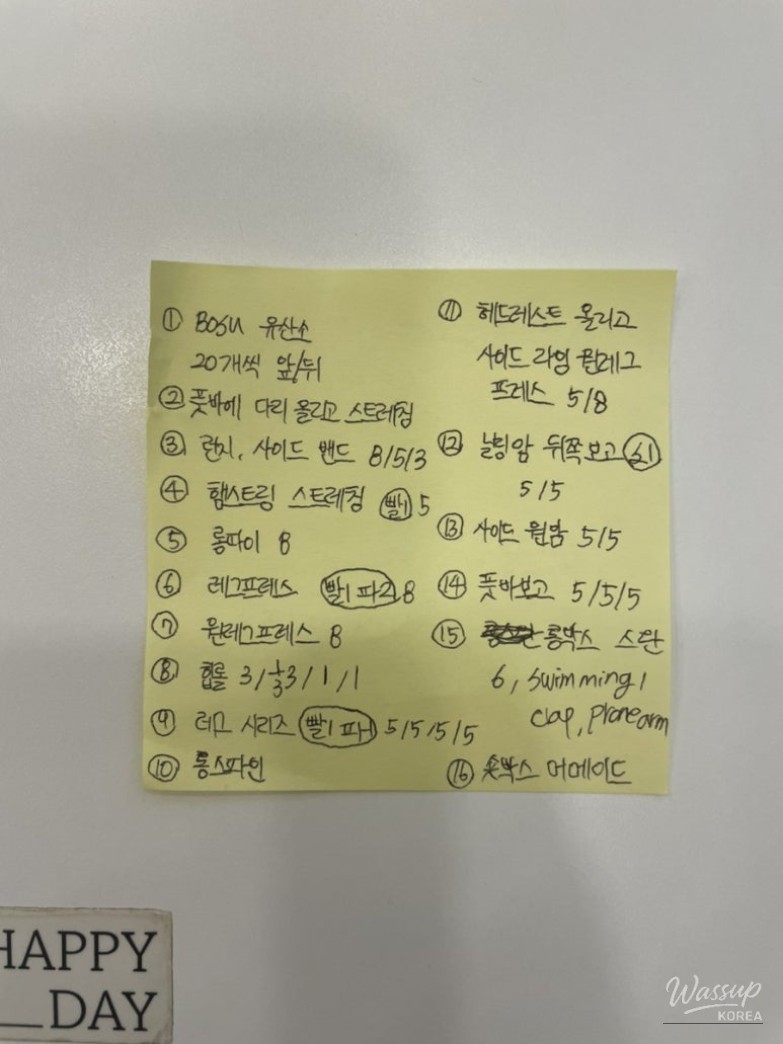 ① BOSU 유산소
20개씩 앞/뒤
② 풋바에 다리 올리고 스트레칭
③ 런지, 사이드 밴드 8/5/3
④ 햄스트링 스트레칭 빨1 5
⑤ 롱파이 8
⑥ 레그프레스 빨1 파2 8
⑦ 원레그프레스 8
⑧ 힙롤 3/⅓3/1/1
⑨ 레그 시리즈 빨1 파1 5/5/5/5
⑩ 롱스파인
⑪ 헤드레스트 올리고
사이드 라잉 원레그
프레스 5/8
⑫ 닐링암 뒤쪽보고
5/5
⑬ 사이드 원암 5/5
⑭ 풋바보고 5/5/5
⑮ 롱박스 스완
6, swimming,
clap, prone arm
⑯ 숏박스 머메이드
HAPPY
DAY
Wassup
KOREA